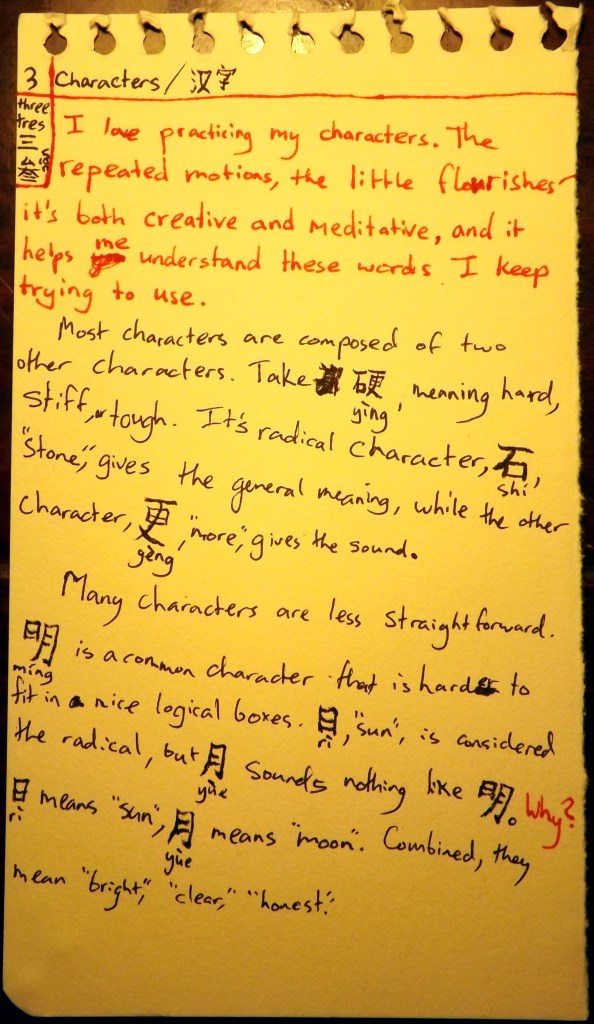 3 Characters / 汉字
three
tres
三
叁
sān
I love practicing my characters. The
repeated motions, the little flourishes-
it's both creative and meditative, and it
helps me understand these words I keep
trying to use.
Most characters are composed of two
other characters. Take 硬, meaning hard,
yìng
stiff, or tough. It's radical character, 石,
shí
"Stone," gives the general meaning, while the other
character, 更, "more," gives the sound.
gèng
Many characters are less straightforward.
明 is a common character that is hard to
míng
fit in nice logical boxes. 日, "sun", is considered
rì
the radical, but 月 sounds nothing like 明。 Why?
yùe
日 means "sun", 月 means "moon". Combined, they
rì
yùe
mean "bright," "clear," "honest."